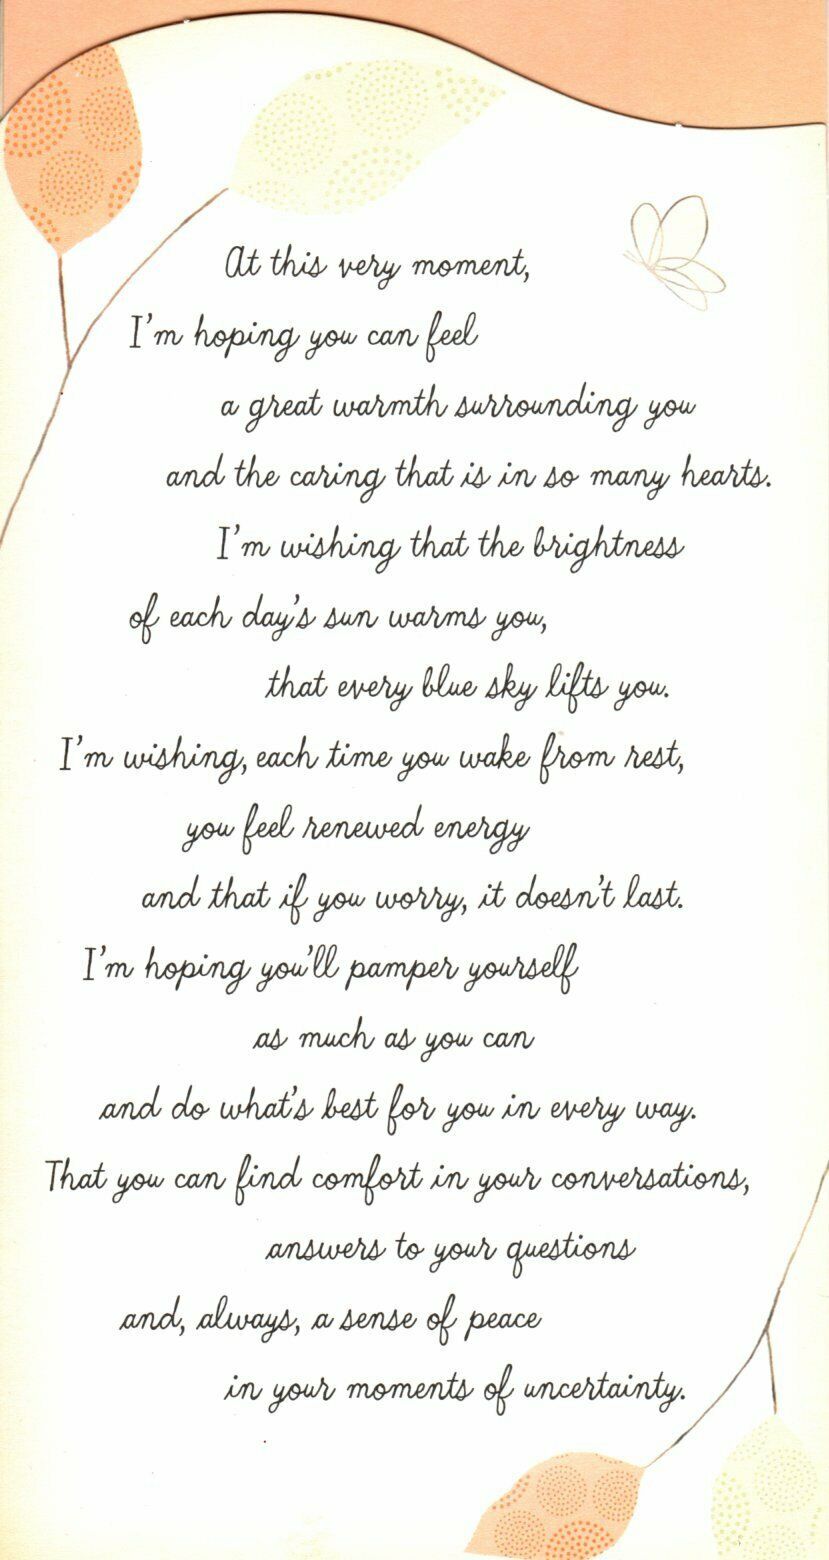 At this very moment,
I'm hoping you can feel
a great warmth surrounding you
and the caring that is in so many hearts.
I'm wishing that the brightness
of each day's sun warms you,
that every blue sky lifts you.
I'm wishing, each time you wake from rest,
you feel renewed energy
and that if you worry, it doesn't last.
I'm hoping you'll pamper yourself
as much as you can
and do what's best for you in every way.
That you can find comfort in your conversations,
answers to your questions
and, always, a sense of peace
in your moments of uncertainty.